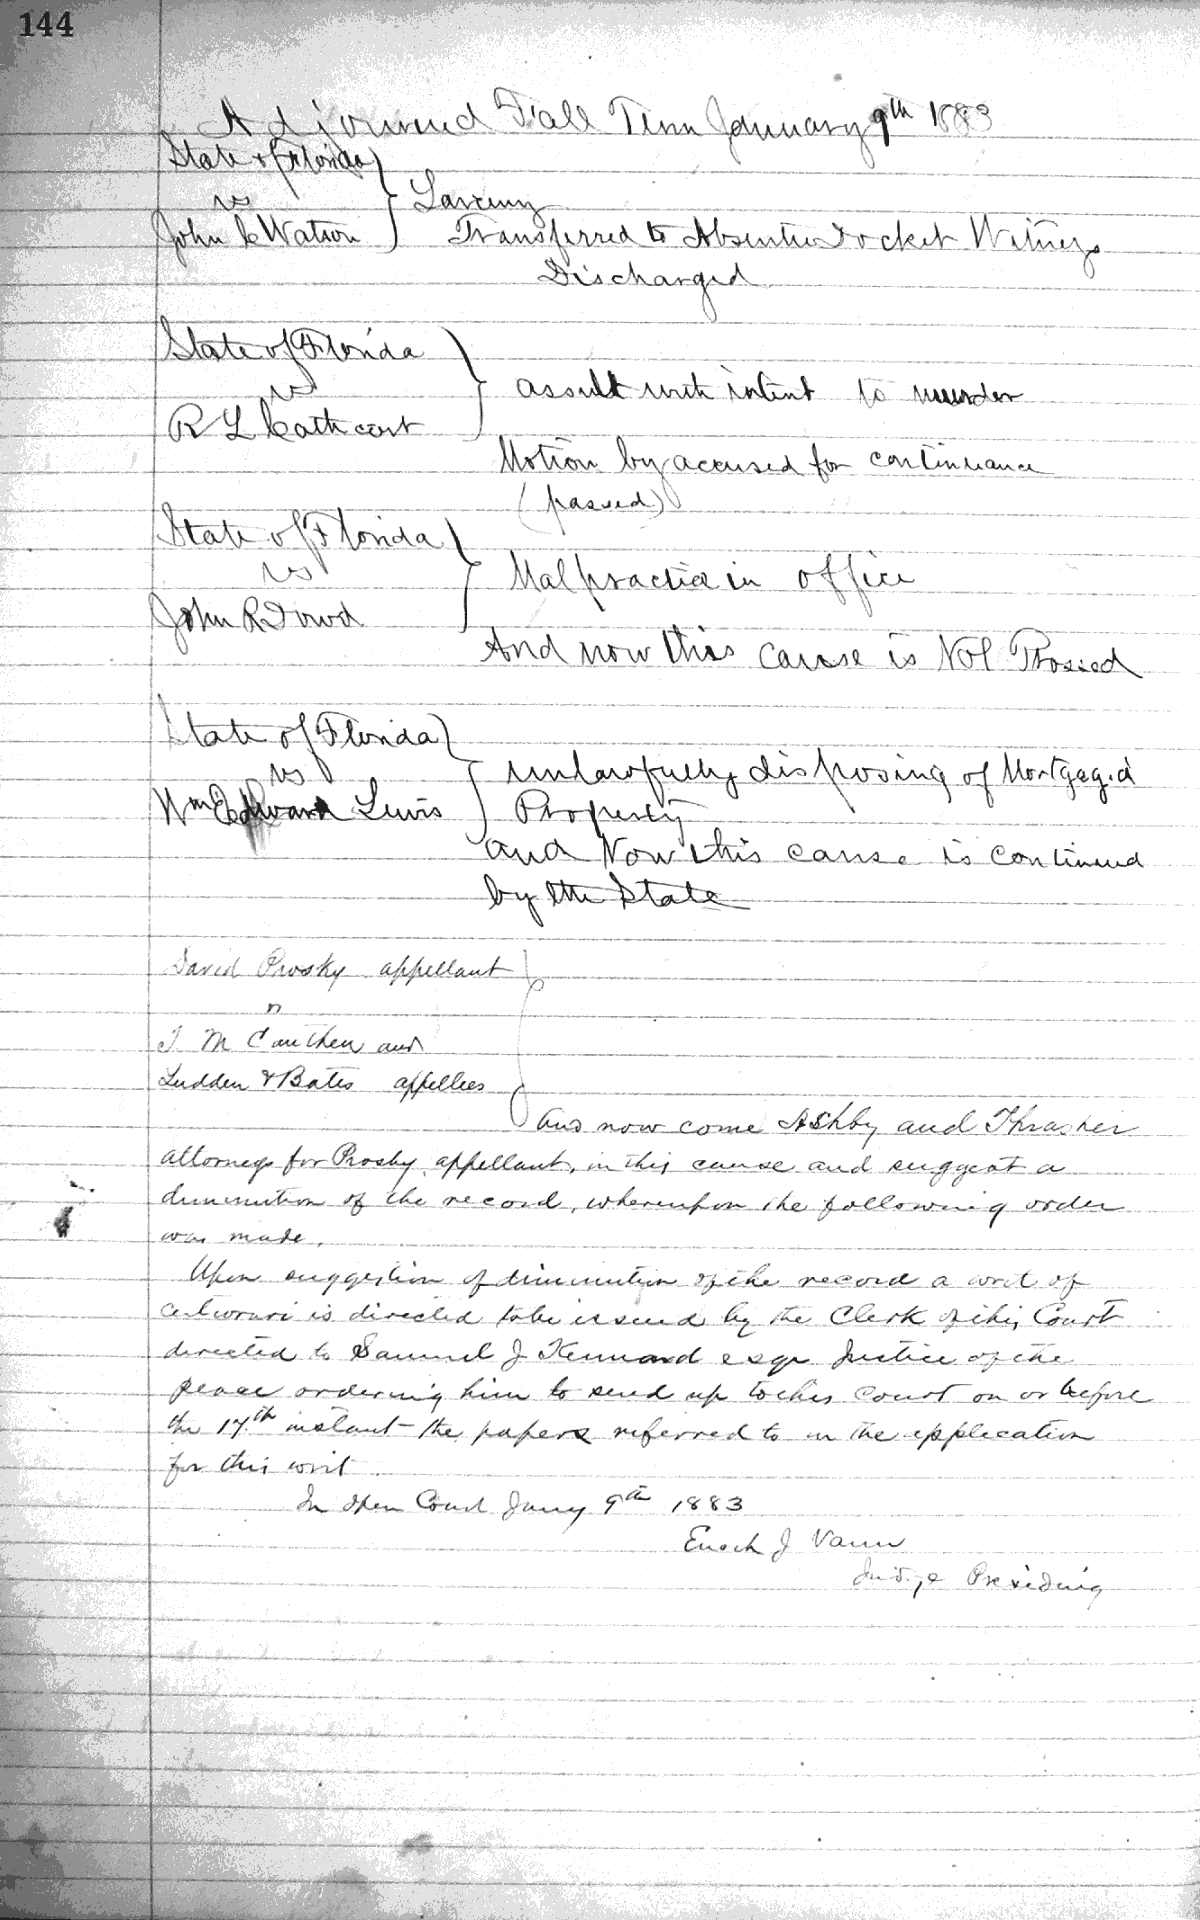 144
Adjourned Fall Term January 9th 1883
State of Florida
vs
John C Watson
Larceny
Transferred to Absentee Docket Witness
Discharged
State of Florida
vs
R L Cathcart
assult with intent to murder
Motion by accused for continueance
(passed)
State of Florida
vs
John R Dowd
Malpractice in office
And now this cause is Nol Prossed
State of Florida
vs
Wm Edward Lewis
unlawfully disposing of Mortgaged
Property
and Now this cause is continued
by the State
David Prosky appellant
vs
T M Cauthen and
Ludden & Bates appellees
And now come Ashby and Thrasher
attorneys for Prosky appellant, in this cause and suggest a
diminution of the record, whereupon the following order
was made.
Upon suggestion of diminution of the record a writ of
certiorari is directed to be issued by the Clerk of this Court
directed to Samuel J Kennard esqr Justice of the
peace ordering him to send up to this Court on or before
the 17th instant the papers referred to in the application
for this writ
In open Court Jany 9th 1883
Enoch J Vann
Judge Presiding